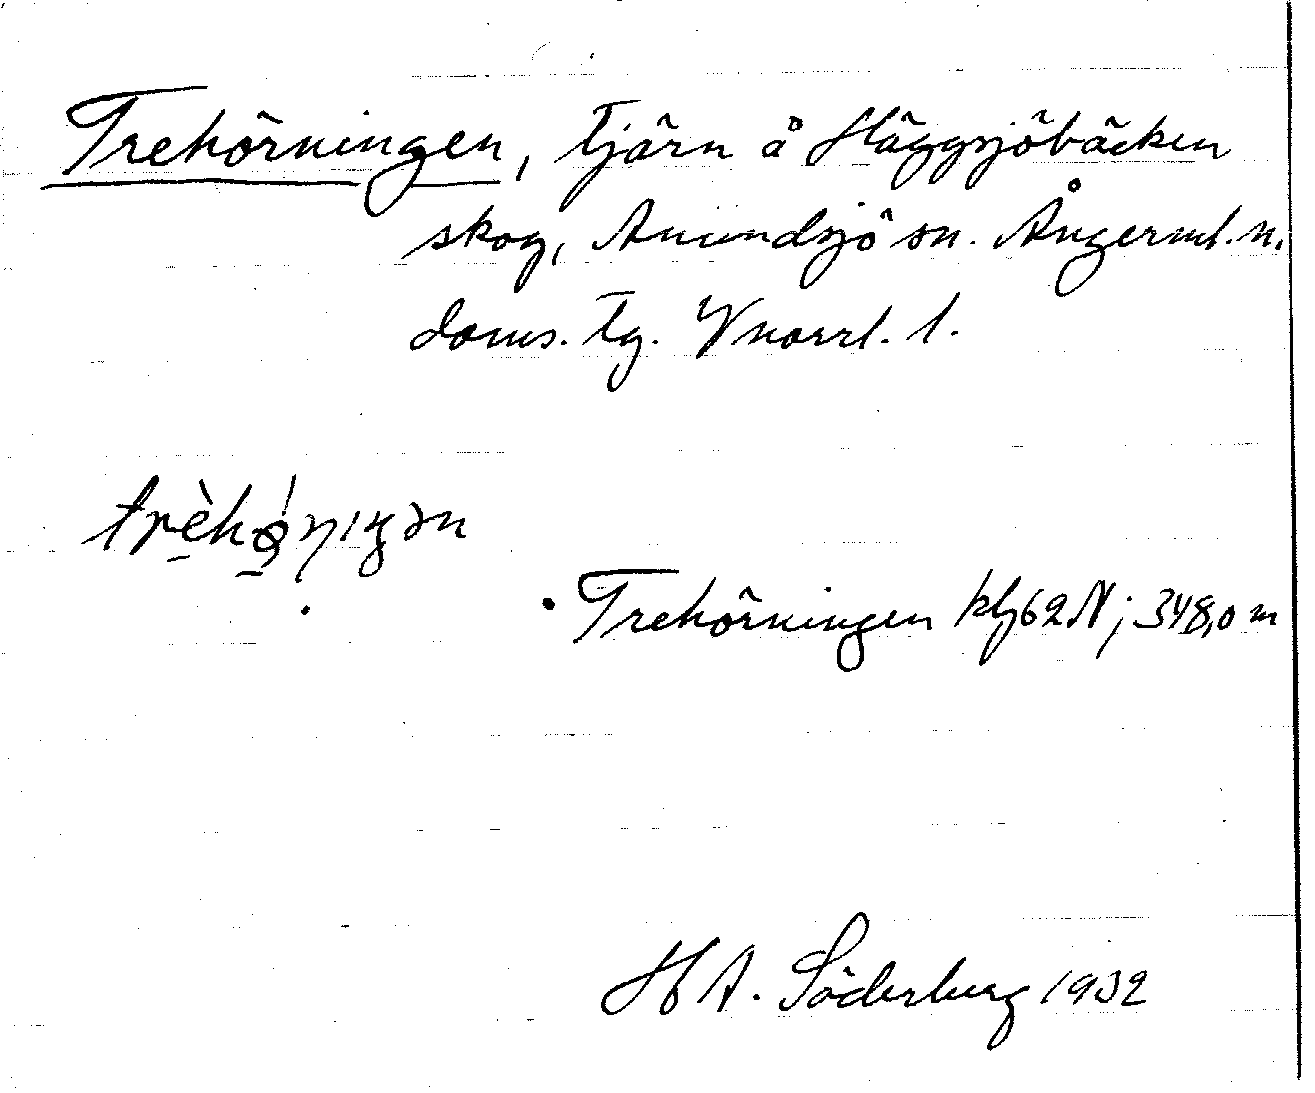 Trehörningen, tjärn å Häggsjöbäcken
skog, Anundsjö sn. Ångerml. n.
doms. tg. Vnorrl. l.
trèhǿŋiŋən
Trehörningen kbl 62 N; 348,0 m
H A. Söderberg 1932